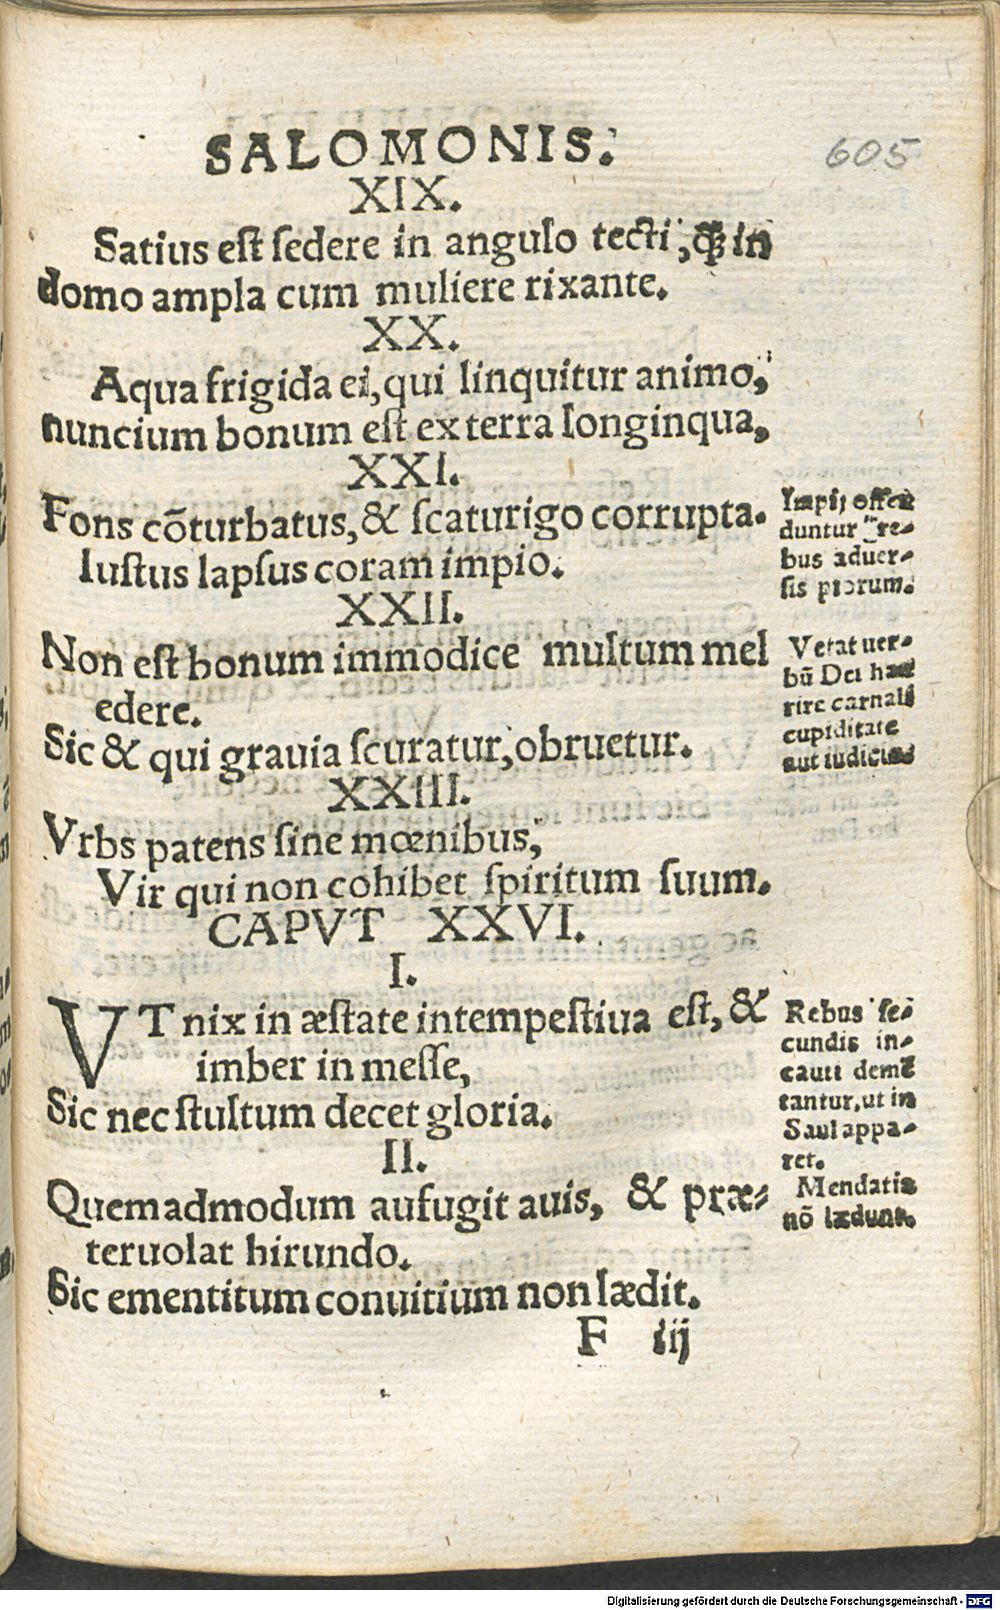 SALOMONIS.
605
XIX.
Satius est sedere in angulo tecti, ꝙ̃ in
domo ampla cum muliere rixante.
XX.
Aqua frigida ei, qui linquitur animo,
nuncium bonum est ex terra longinqua,
XXI.
Fons cōturbatus, & scaturigo corrupta.
Iustus lapsus coram impio.
Impij offen
duntur re-
bus aduer-
sis piorum.
XXII.
Non est bonum immodice multum mel
edere.
Sic & qui grauia scuratur, obruetur.
Vetat uer-
bū Dei hau
rire carnali
cupiditate
aut iudicio
XXIII.
Vrbs patens sine mœnibus,
Vir qui non cohibet spiritum suum.
CAPVT XXVI.
I.
VT nix in æstate intempestiua est, &
imber in messe,
Sic nec stultum decet gloria.
Rebus se-
cundis in-
cauti demē
tantur, ut in
Saul appa-
ret.
II.
Quemadmodum aufugit auis, & præ-
teruolat hirundo.
Sic ementitum conuitium non lædit.
Mendatia
nō lædunt.
F iij
Digitalisierung gefördert durch die Deutsche Forschungsgemeinschaft - DFG